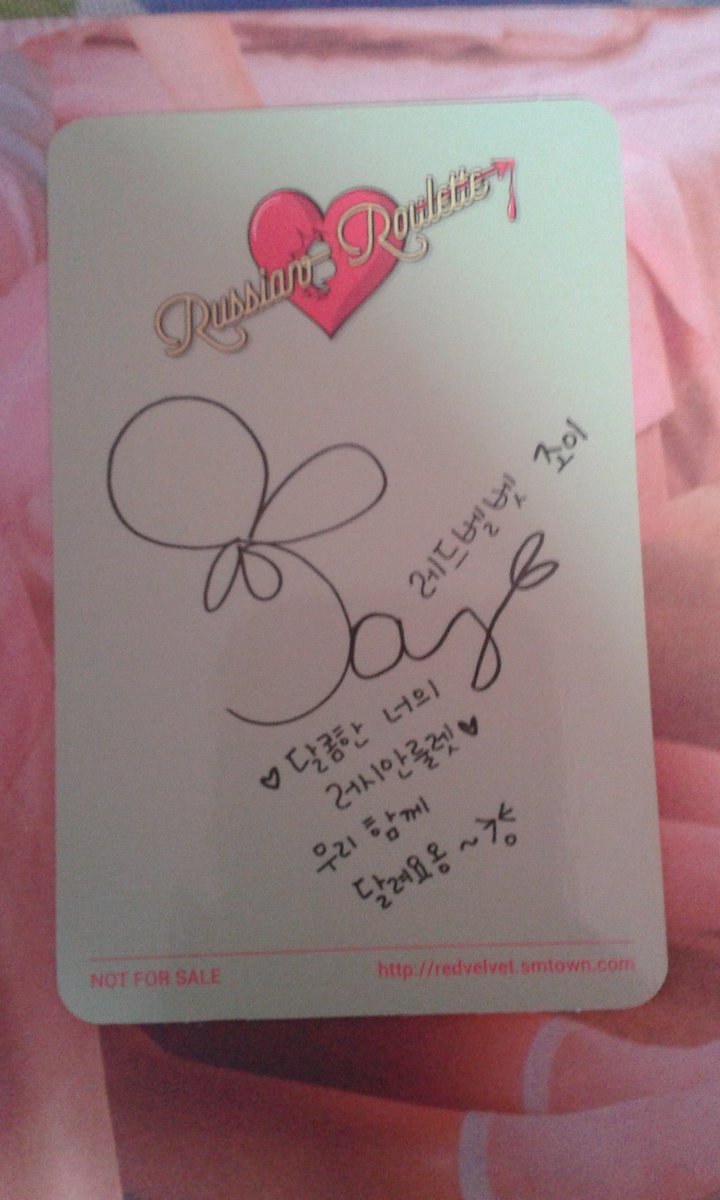 Russian Roulette
레드벨벳 조이
Joy
♥ 달콤한 너의
러시안룰렛 ♥
우리 함께
달려요옹 ~
NOT FOR SALE
http://redvelvet.smtown.com